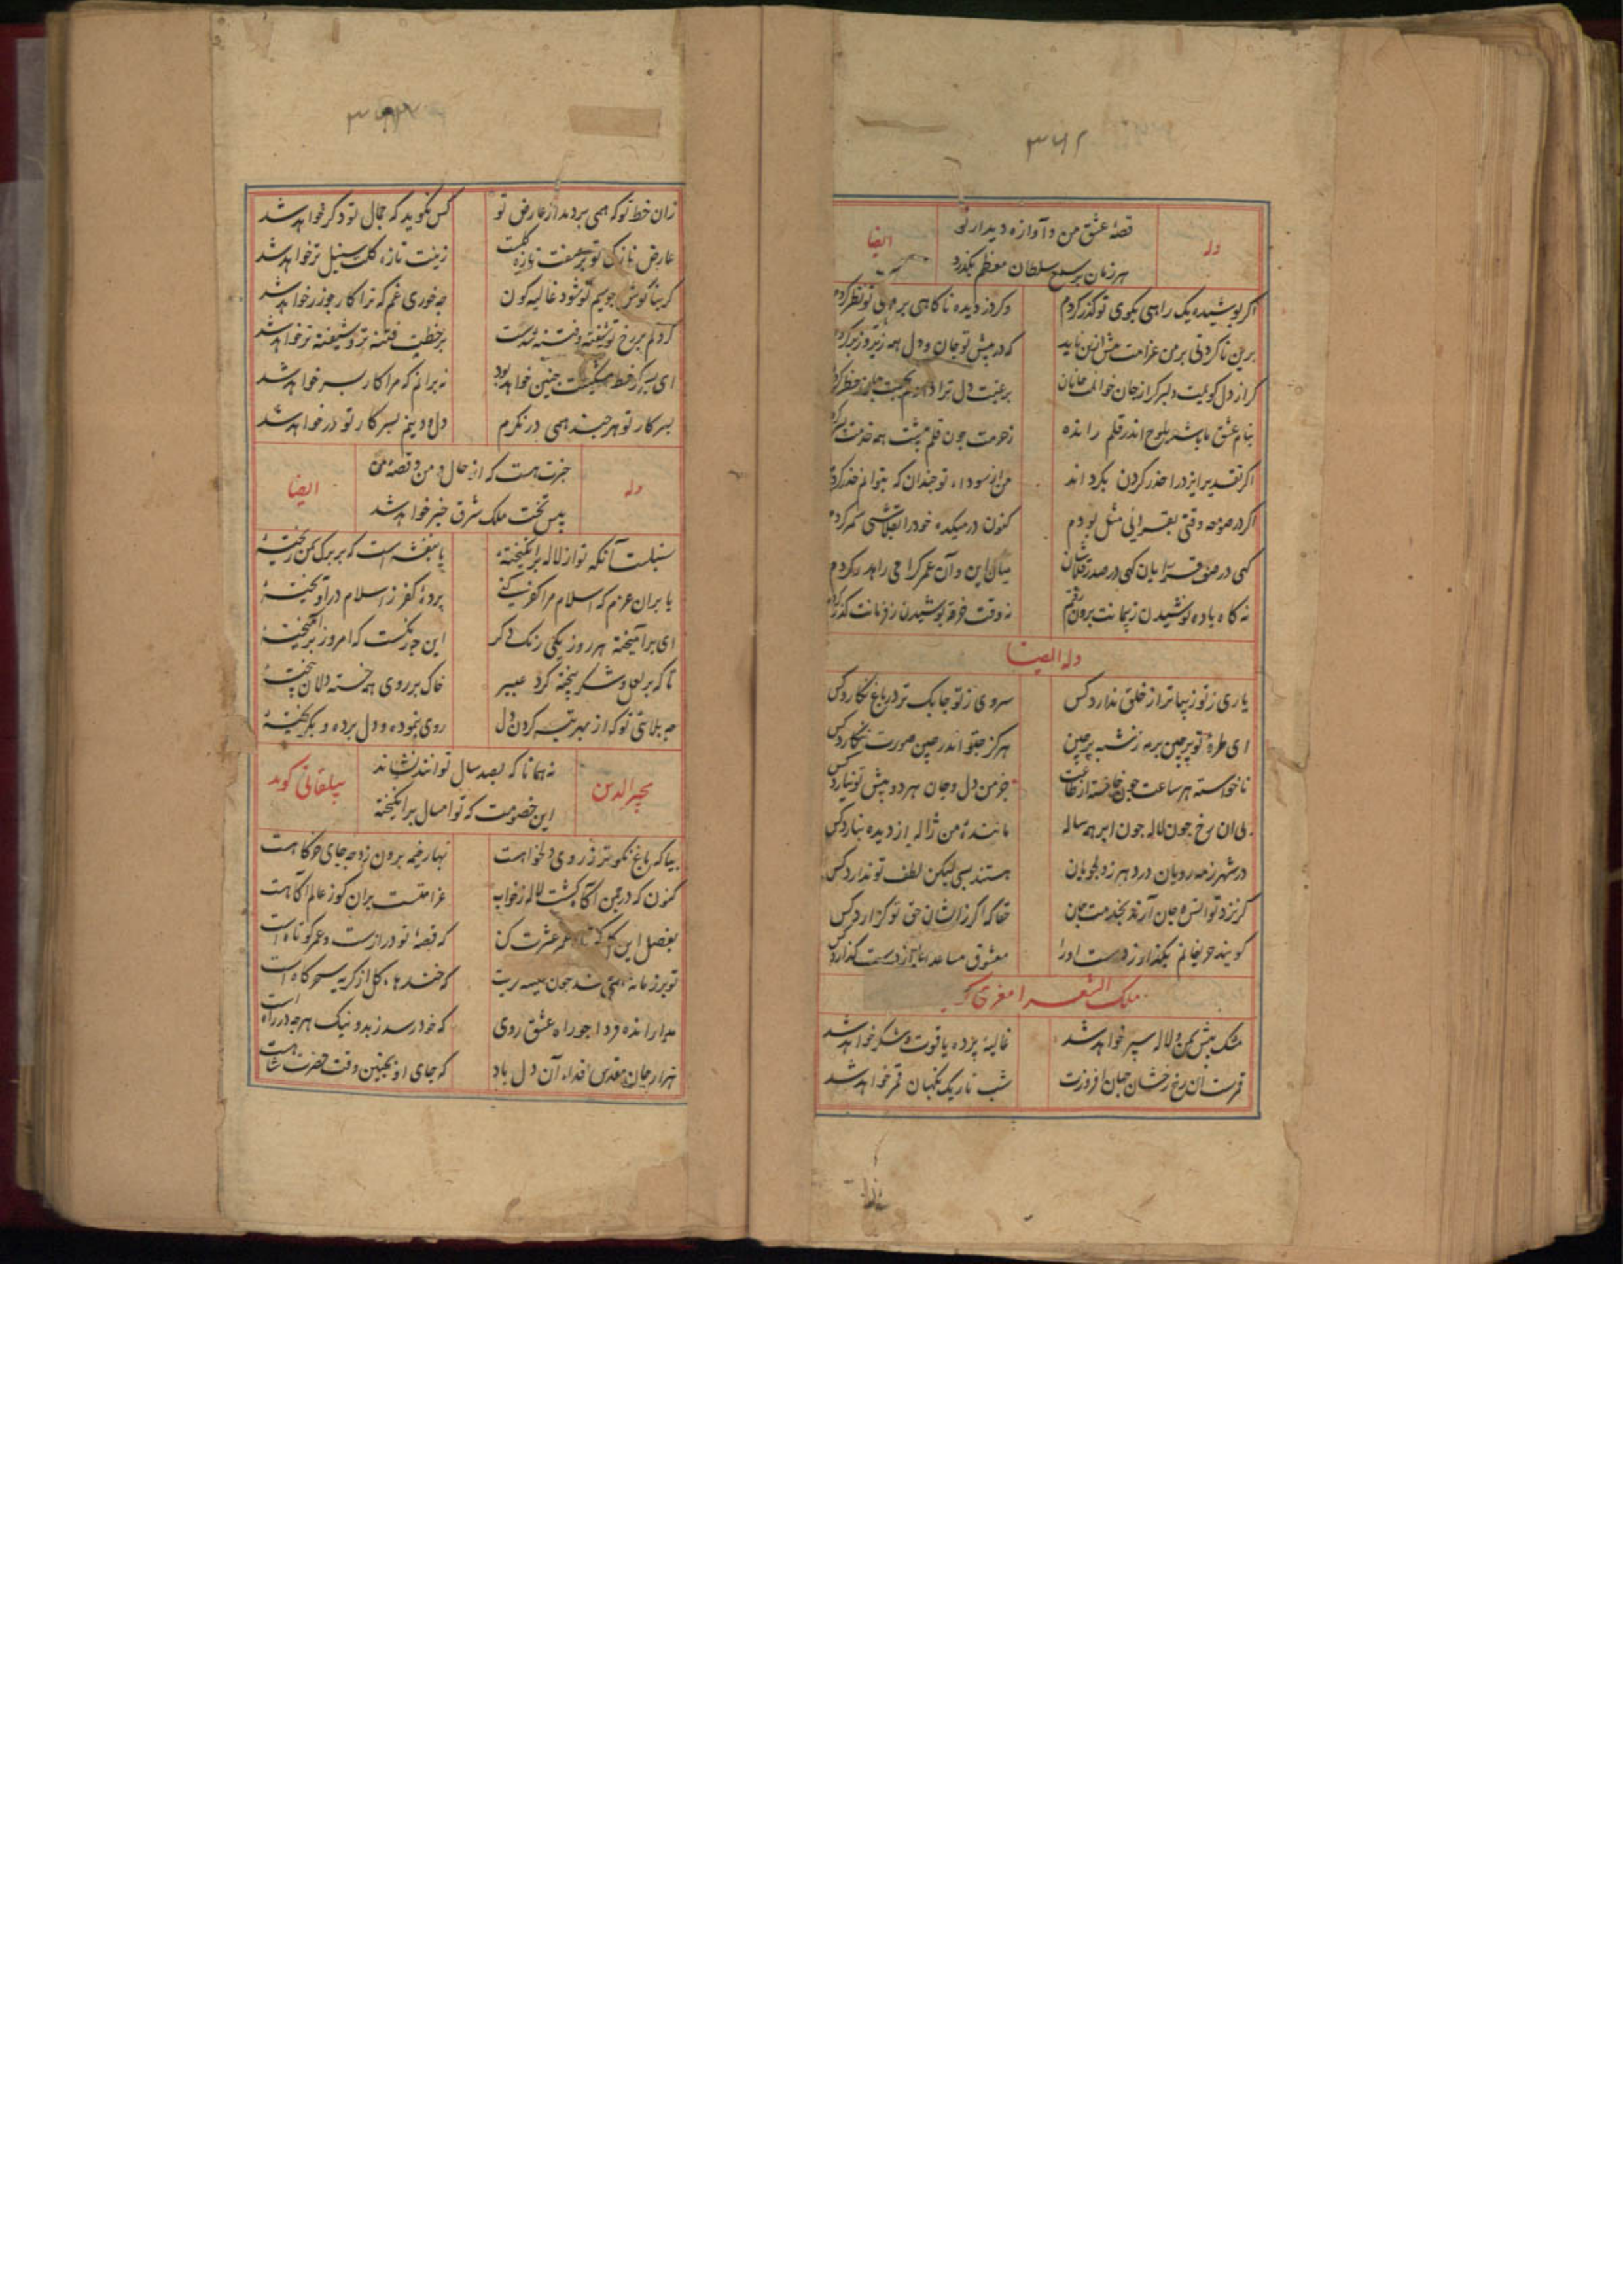 ۳۶۱
وله
قصهٔ عشق من و آوازه دیدار تو
ایضا
هر زمان بر سمع سلطان معظم بگذرد
اگر پوشیده یک راهی بکوی تو گذر کردم وگر دزدیده ناگاهی بر تو نظر کردم
برین ناکردنی بر من غرامت بیش ازین ناید که در پیش تو جان و دل همه زیر و زبر کردم
بنام عشق ما باشد بلوح اندر قلم رانده
اگر تقدیر ایزد را حذر کردن بگرداند من از سوداء تو چندان که بتوانم حذر کردم
اگر در صومعه وقتی بقرایی مثل بودم کنون در میکده خود را بقلاشی سمر کردم
کهی در صف قرایان کهی در صدر قلاشان میان این و آن عمر گرامی را هدر کردم
نه گاه باده نوشیدن ز پیمانت برون رفتم نه وقت خرقه پوشیدن ز فرمانت گذر کردم
وله ایضا
یاری ز تو زیباتر از خلق ندارد کس سروی ز تو چابک تر در باغ نکارد کس
ای طره تو پرچین برمه ز شبه پرچین هرگز چو تو اندر چین صورت ننکارد کس
ناخواسته هر ساعت جز من دل و جان هر دو پیش تو نیارد کس
بی ان رخ چون لاله چون ابر همه ساله مانندهٔ من ژاله از دیده نبارد کس
در شهر ز مه رویان درد هر ز دلجویان هستند بسی لیکن لطف تو ندارد کس
گر نزد تو انس و جان آرند بخدمت جان حقا که اگر زایشان حق تو گزارد کس
گویند حریفانم بگذار ز دست او را معشوق مساعد را از دست گذارد کس
ملک الشعرا معزی گوید
مشک پیش سمن و لاله سپر خواهد شد غالیه پرده یاقوت و شکر خواهد شد
قمرست ان رخ رخشان جهان افروزت شب تاریک نکهبان قمر خواهد شد
زان خط تو که همی بردمد از عارض تو کس نگوید که جمال تو دگر خواهد شد
عارض نازک تو زینت تازه گلت سنبل تر خواهد شد
گر بناگوش چو سیم تو شود غالیه گون چه خوری غم که ترا کار چو زر خواهد شد
گر دلم بر رخ تو شیفته و فتنه شدست بر خطت فتنه تر و شیفته تر خواهد شد
ای پسر گر خط مشکینت چنین خواهد بود نه برانم که مرا کار بسر خواهد شد
بسر کار تو هر چند همی درنگرم دل و دینم بسر کار تو در خواهد شد
وله
خبرت هست که از حال من و قصهٔ من
ایضا
پیش تخت ملک شرق خبر خواهد شد
سنبلست آنکه تو از لاله برانگیختهٔ یا بنفشه است که بر برگ سمن ریختهٔ
یا بران عزم که اسلام مرا کفر کنی پردهٔ کفر ز اسلام درآویختهٔ
ای برآمیخته هر روز یکی رنگ دگر این چه رنگست که امروز برآمیختهٔ
تا که بر لعل و شکر بیخته گرد عبیر خاک بر روی همه خسته دلان بیختهٔ
چه بلائی تو که از بهر تبه کردن دل روی بنموده و دل برده و بگریختهٔ
مجیرالدین
نه همانا که بصد سال توانند نشاند
بیلقانی گوید
این خصومت که تو امسال برانگیختهٔ
بیا که باغ نکوتر ز روی دلخواهست بهار خیمه برون زد چه جای خرگاهست
کنون که در چمن آگاه گشت لاله ز خواب غرامتست بران کو ز عالم آگاهست
بفصل این گل عشرت کن که قصهٔ تو درازست و عمر کوتاه است
که خندهاء گل از گریه سحرگاه است
مدار انده فردا چو راه عشق روی که خود رسد ز بد و نیک هرچه در راه است
هزار جان مقدس فداء آن دل باد که جای او بچنین وقت حضرت شاهست